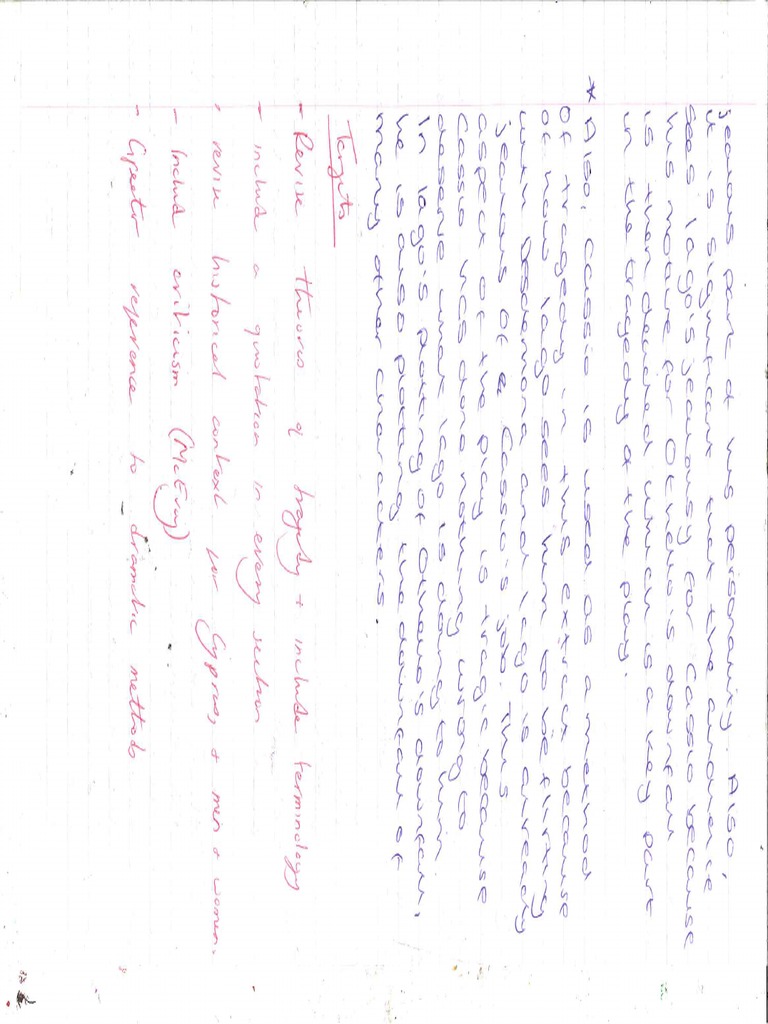 jealous part of his personality. Also,
it is significant that the audience
sees Iago's jealously for Cassio because
his motive for Othello's downfall
is then decided which is a key part
in the tragedy of the play.
* Also, Cassio is used as a method
of tragedy in this extract because
of how Iago sees him to be flirting
with Desdemona and Iago is already
jealous of Cassio's job. This
aspect of the play is tragic because
Cassio has done nothing wrong to
deserve what Iago is doing to him.
In Iago's plotting of Othello's downfall,
he is also plotting the downfall of
many other characters.
Targets
- Revise theories of tragedy + include terminology
- include a quotation in every section
- revise historical context for Cyprus, + men + women.
- Include criticism (McEvoy)
- Greater reference to dramatic methods